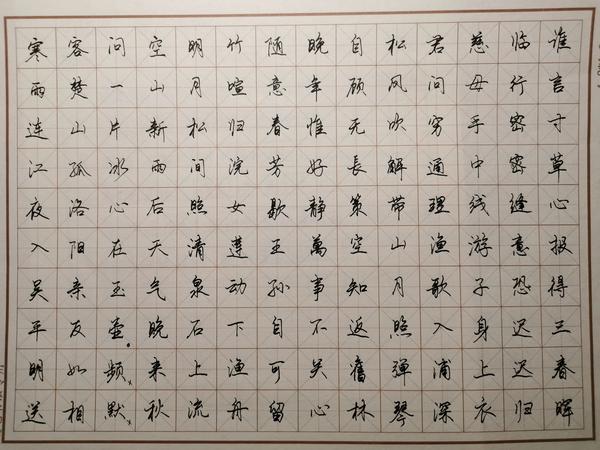 寒雨连江夜入吴平明送
客楚山孤洛阳亲友如相
问一片冰心在玉壶。频默
空山新雨后天气晚来秋
明月松间照清泉石上流
竹喧归浣女莲动下渔舟
随意春芳歇王孙自可留
晚年惟好静萬事不关心
自顾无長策空知返舊林
松风吹解带山月照弹琴
君问穷通理渔歌入浦深
慈母手中线游子身上衣
临行密密缝意恐迟迟归
谁言寸草心报得三春晖